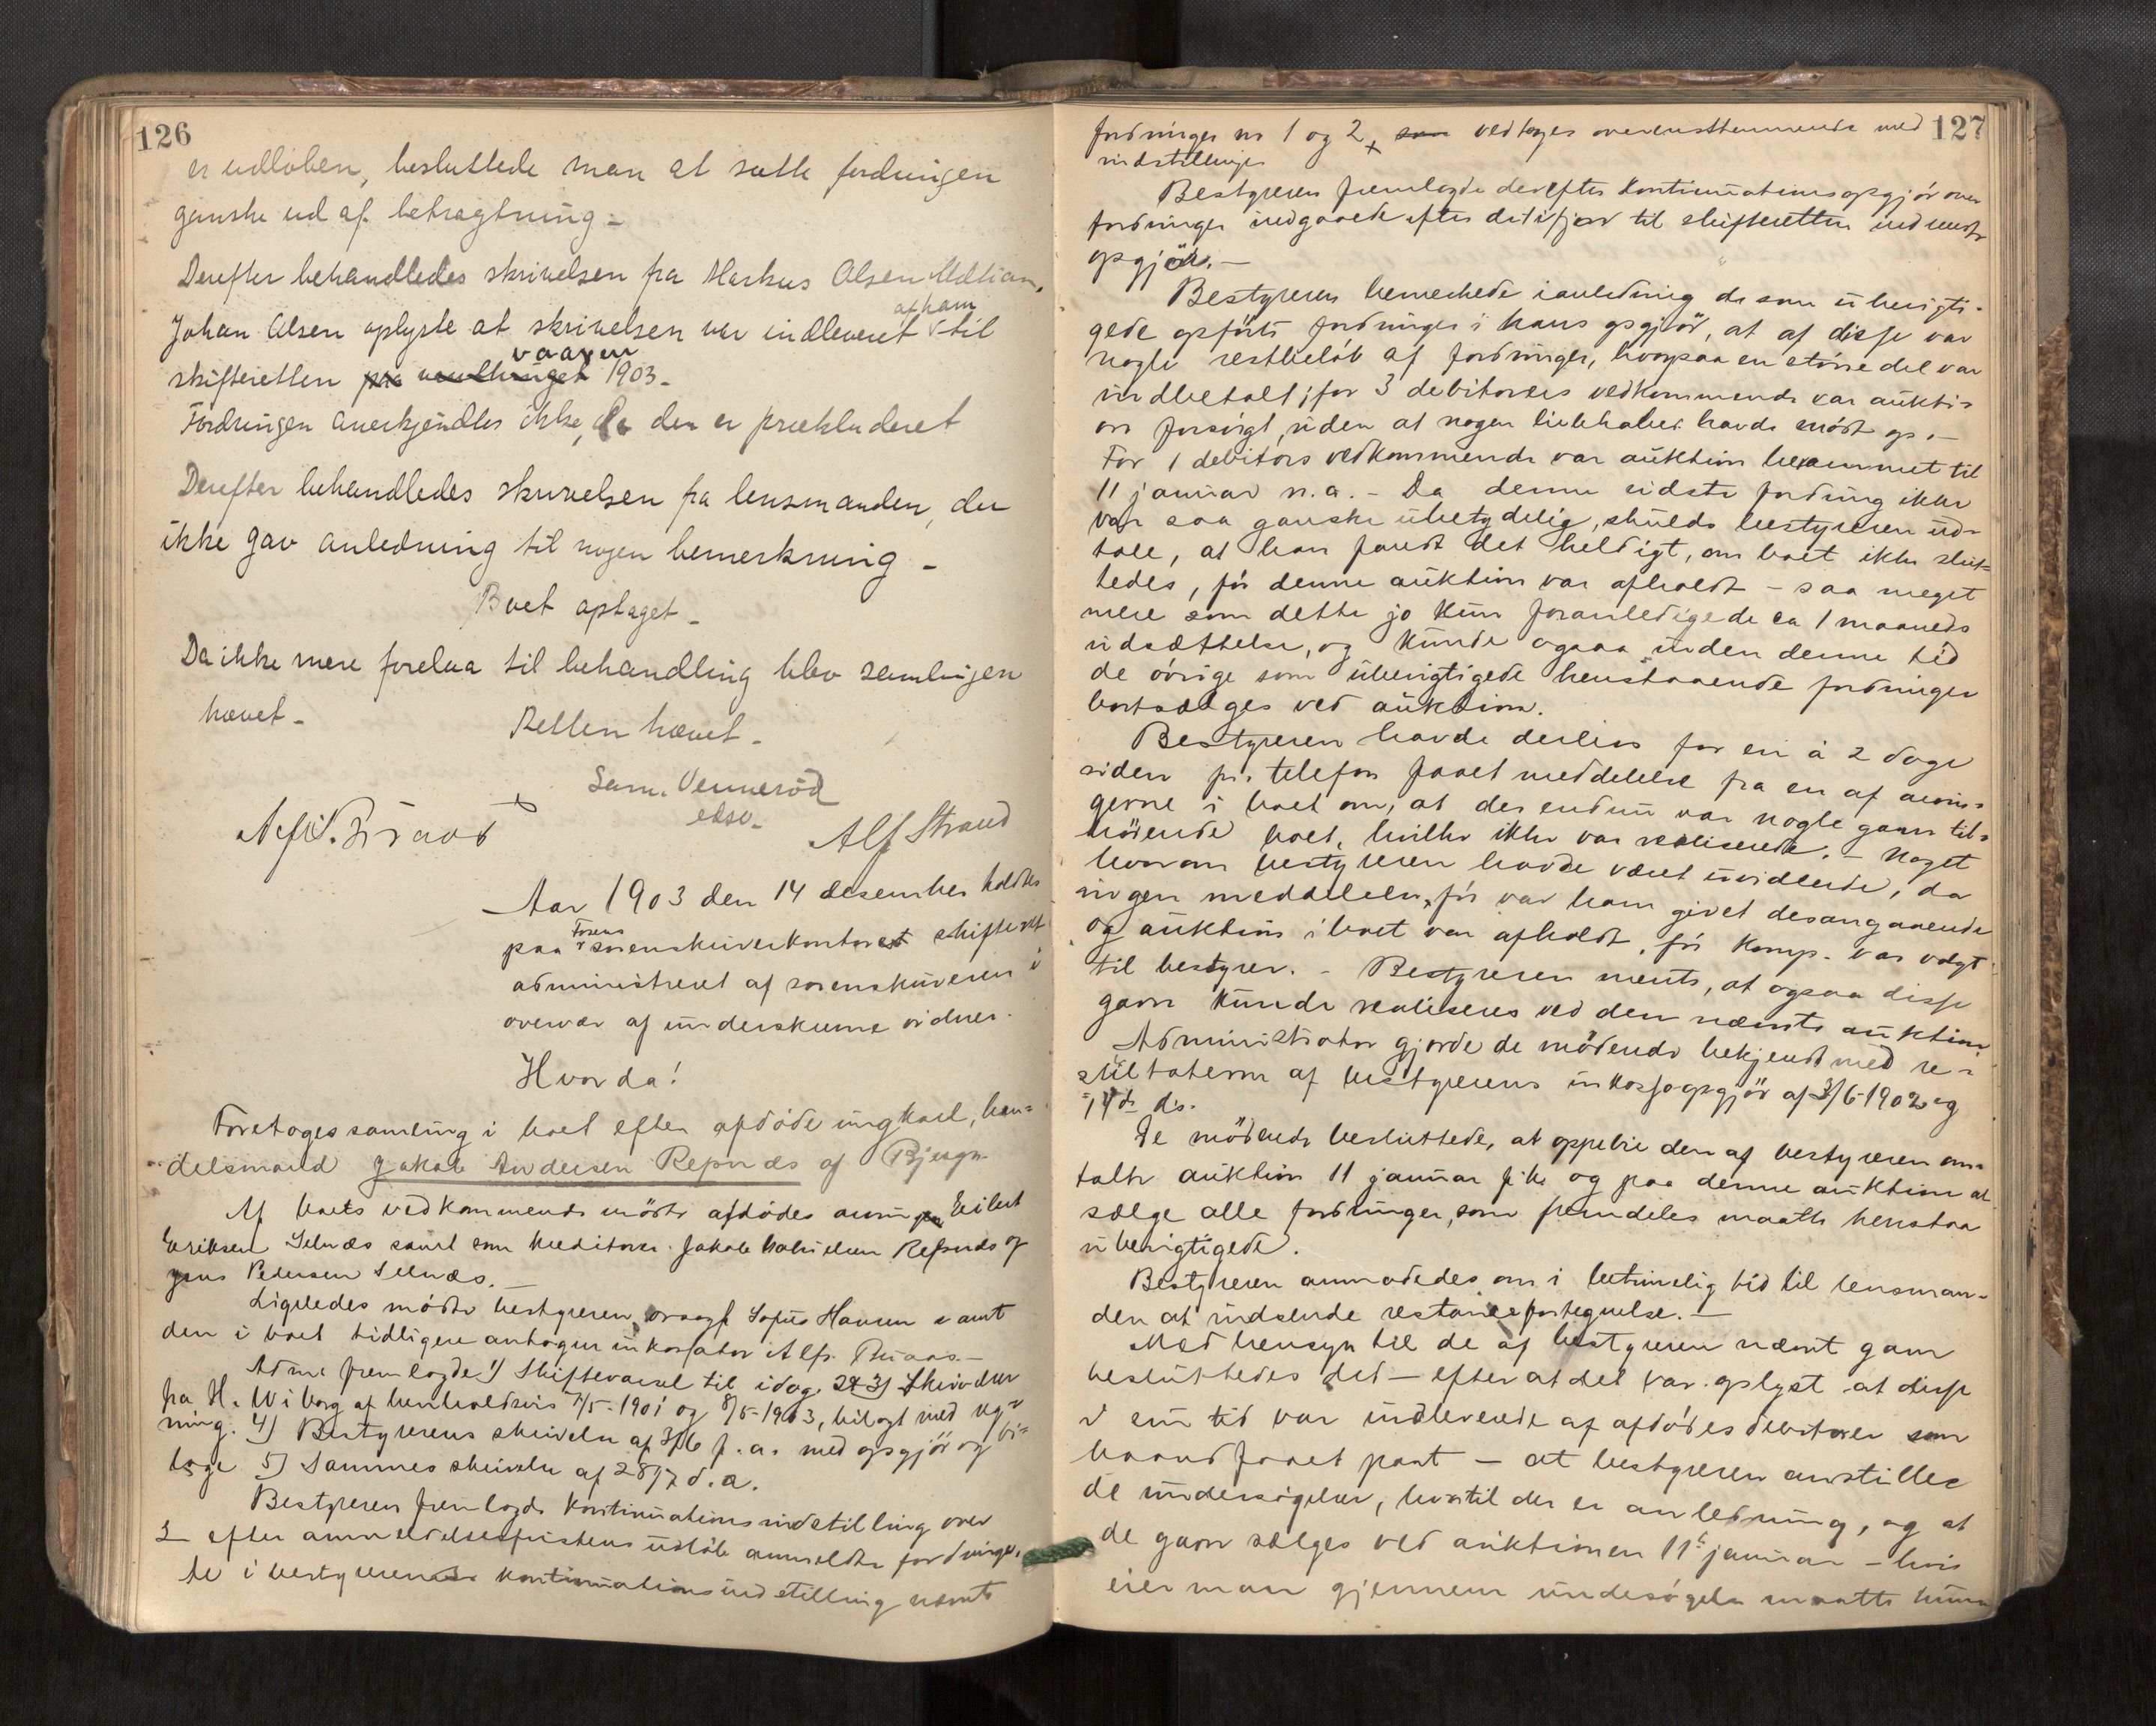 126
er udløben, besluttede man at sætte fordringen
ganske ud af betragtning –
Derefter behandledes skrivelsen fra Markus Olsen
Johan Olsen oplyste at skrivelsen var indleveret af ham til
skifteretten paa vaaren 1903 –
Fordringen anerkjendtes ikke, da den er prækluderet
Derefter behandledes skrivelsen fra lensmanden, der
ikke gav anledning til nogen bemerkning –
Boet optaget –
Da ikke mere forelaa til behandling blev samlingen
hævet –
Retten hævet –
Sam. Vennerød
Alf Strand
Aar 1903 den 14 desember holdtes
paa Fosens sorenskriverkontoret skifteret
administreret af sorenskriveren i
overvær af underskrevne vidner.
Hvorda!
Foretoges samling i boet efter afdøde ungkarl, han-
delsmand Jakob Andersen Refsnæs af Bjugn
Af boets vedkommende mødte afdødes arving Eilert
Eriksen Selnæs samt som kreditorer Jakob Refsnæs og
Jens Pedersen Selnæs. –
Ligeledes mødte bestyreren, orsagf. Sofus Hansen samt
den i boet tidligere antagne inkassator Alfr. –
Adm. fremlagde 1) Skiftevarsel til idag. 2 & 3) Skrivelser
fra H. Wiborg af henholdsvis 7/5-1901 og 8/5-1903, bilagt med reg-
ning. 4) Bestyrerens skrivelse af 3/6 f.a. med opgjør og bi-
lage 5) Sammes skrivelse af 28/7 d.a.
Bestyreren fremlagde kontinuationsindstilling over
2 efter anmeldelsesfristens udløb anmeldte fordringer.
De i bestyrerens kontinuationsindstilling nævnte
127
fordringer nr 1 og 2 + vedtoges overensstemmende med
indstillingen
Bestyreren fremlagde derefter kontinuationsopgjør over
fordringer indgaaede efter det ifjor til skifteretten indsendte
opgjør. –
Bestyreren bemerkede i anledning de som uberigti-
gede opførte fordringer i hans opgjør, at af disse var
nogle restbeløb af fordringer, hvorpaa en større del var
indbetalt; for 3 debitorers vedkommende var aukti-
on forsøgt, uden at nogen liebhaber havde mødt op. –
For 1 debitors vedkommende var auktion berammet til
11 januar n.a. – Da denne sidste fordring ikke
var saa ganske ubetydelig, skulde bestyreren ud-
tale, at han fandt det heldigt, om boet ikke slut-
tedes, før denne auktion var afholdt – saa meget
mere som dette jo kun foranledigede ca 1 maaneds
udsættelse, og kunde ogsaa inden denne tid
de øvrige som uberigtigede henstaaende fordringer
bortsælges ved auktion.
Bestyreren havde derhos for en à 2 dage
siden pr. telefon faaet meddelelse fra en af arvin-
gerne i boet om, at der endnu var nogle garn til-
hørende boet, hvilke ikke var realiserede. – Noget
hvorom bestyreren havde været uvidende, da
ingen meddelelse før var ham givet desangaaende
og auktion i boet var afholdt, før komp. var valgt
til bestyrer. – Bestyreren mente, at ogsaa disse
garn kunde realiseres ved den nævnte auktion
Administrator gjorde de mødende bekjendt med re-
sultaterne af bestyrerens inkassoopgjør af 3/6-1902 og
14de ds.
De mødende besluttede, at oppebie den af bestyreren om-
talte auktion 11 januar f.k. og paa denne auktion at
sælge alle fordringer, som fremdeles maatte henstaa
uberigtigede.
Bestyreren anmodedes om i betimelig tid til lensman-
den at indsende restancefortegnelse. –
Med hensyn til de af bestyreren nævnt garn
besluttedes det – efter at det var oplyst at disse
i sin tid var indleverede af afdødes debitorer som
haandfaaet pant – at bestyreren anstiller
de undersøgelser, hvortil der er anledning, og at
de garn sælges ved auktionen 11te januar – hvis
eier man gjennem undersøgelse maatte kunne